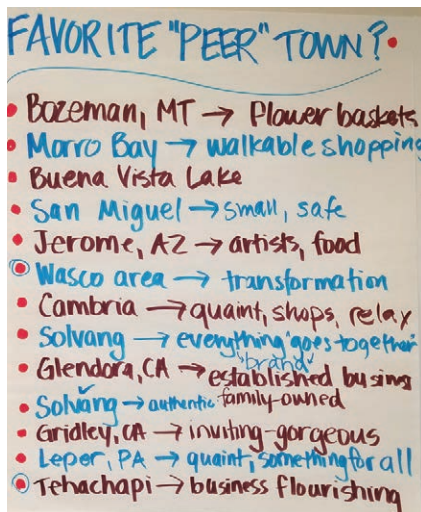 FAVORITE "PEER" TOWN?
Bozeman, MT → flower baskets
Morro Bay → walkable shopping
Buena Vista Lake
San Miguel → small, safe
Jerome, AZ → artists, food
Wasco area → transformation
Cambria → quaint, shops, relax
Solvang → everything goes together
"brand"
Glendora, CA → established busins
family-owned
Solvang → authentic
Gridley, CA → inviting-gorgeous
Leper, PA → quaint, something for all
Tehachapi → business flourishing